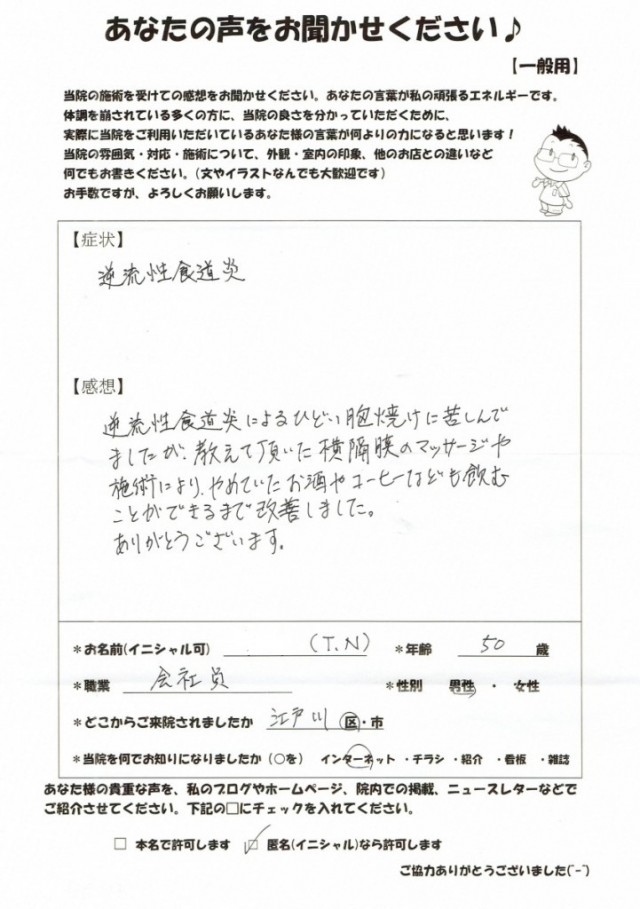 あなたの声をお聞かせください♪
【一般用】
当院の施術を受けての感想をお聞かせください。あなたの言葉が私の頑張るエネルギーです。
体調を崩されている多くの方に、当院の良さを分かっていただくために、
実際に当院をご利用いただいているあなた様の言葉が何よりの力になると思います！
当院の雰囲気・対応・施術について、外観・室内の印象、他のお店との違いなど
何でもお書きください。（文やイラストなんでも大歓迎です）
お手数ですが、よろしくお願いします。
【症状】
逆流性食道炎
【感想】
逆流性食道炎によるひどい胸焼けに苦しんで
ましたが、教えて頂いた横隔膜のマッサージや
施術により、やめていたお酒やコーヒーなども飲む
ことができるまで改善しました。
ありがとうございます。
＊お名前(イニシャル可) (T.N) ＊年齢 50 歳
＊職業 会社員 ＊性別 男性 ・ 女性
＊どこからご来院されましたか 江戸川 区・市
＊当院を何でお知りになりましたか（○を） インターネット ・チラシ ・紹介 ・看板 ・雑誌
あなた様の貴重な声を、私のブログやホームページ、院内での掲載、ニュースレターなどで
ご紹介させてください。下記の□にチェックを入れてください。
□ 本名で許可します ☑ 匿名(イニシャル)なら許可します
ご協力ありがとうございました(^-^)